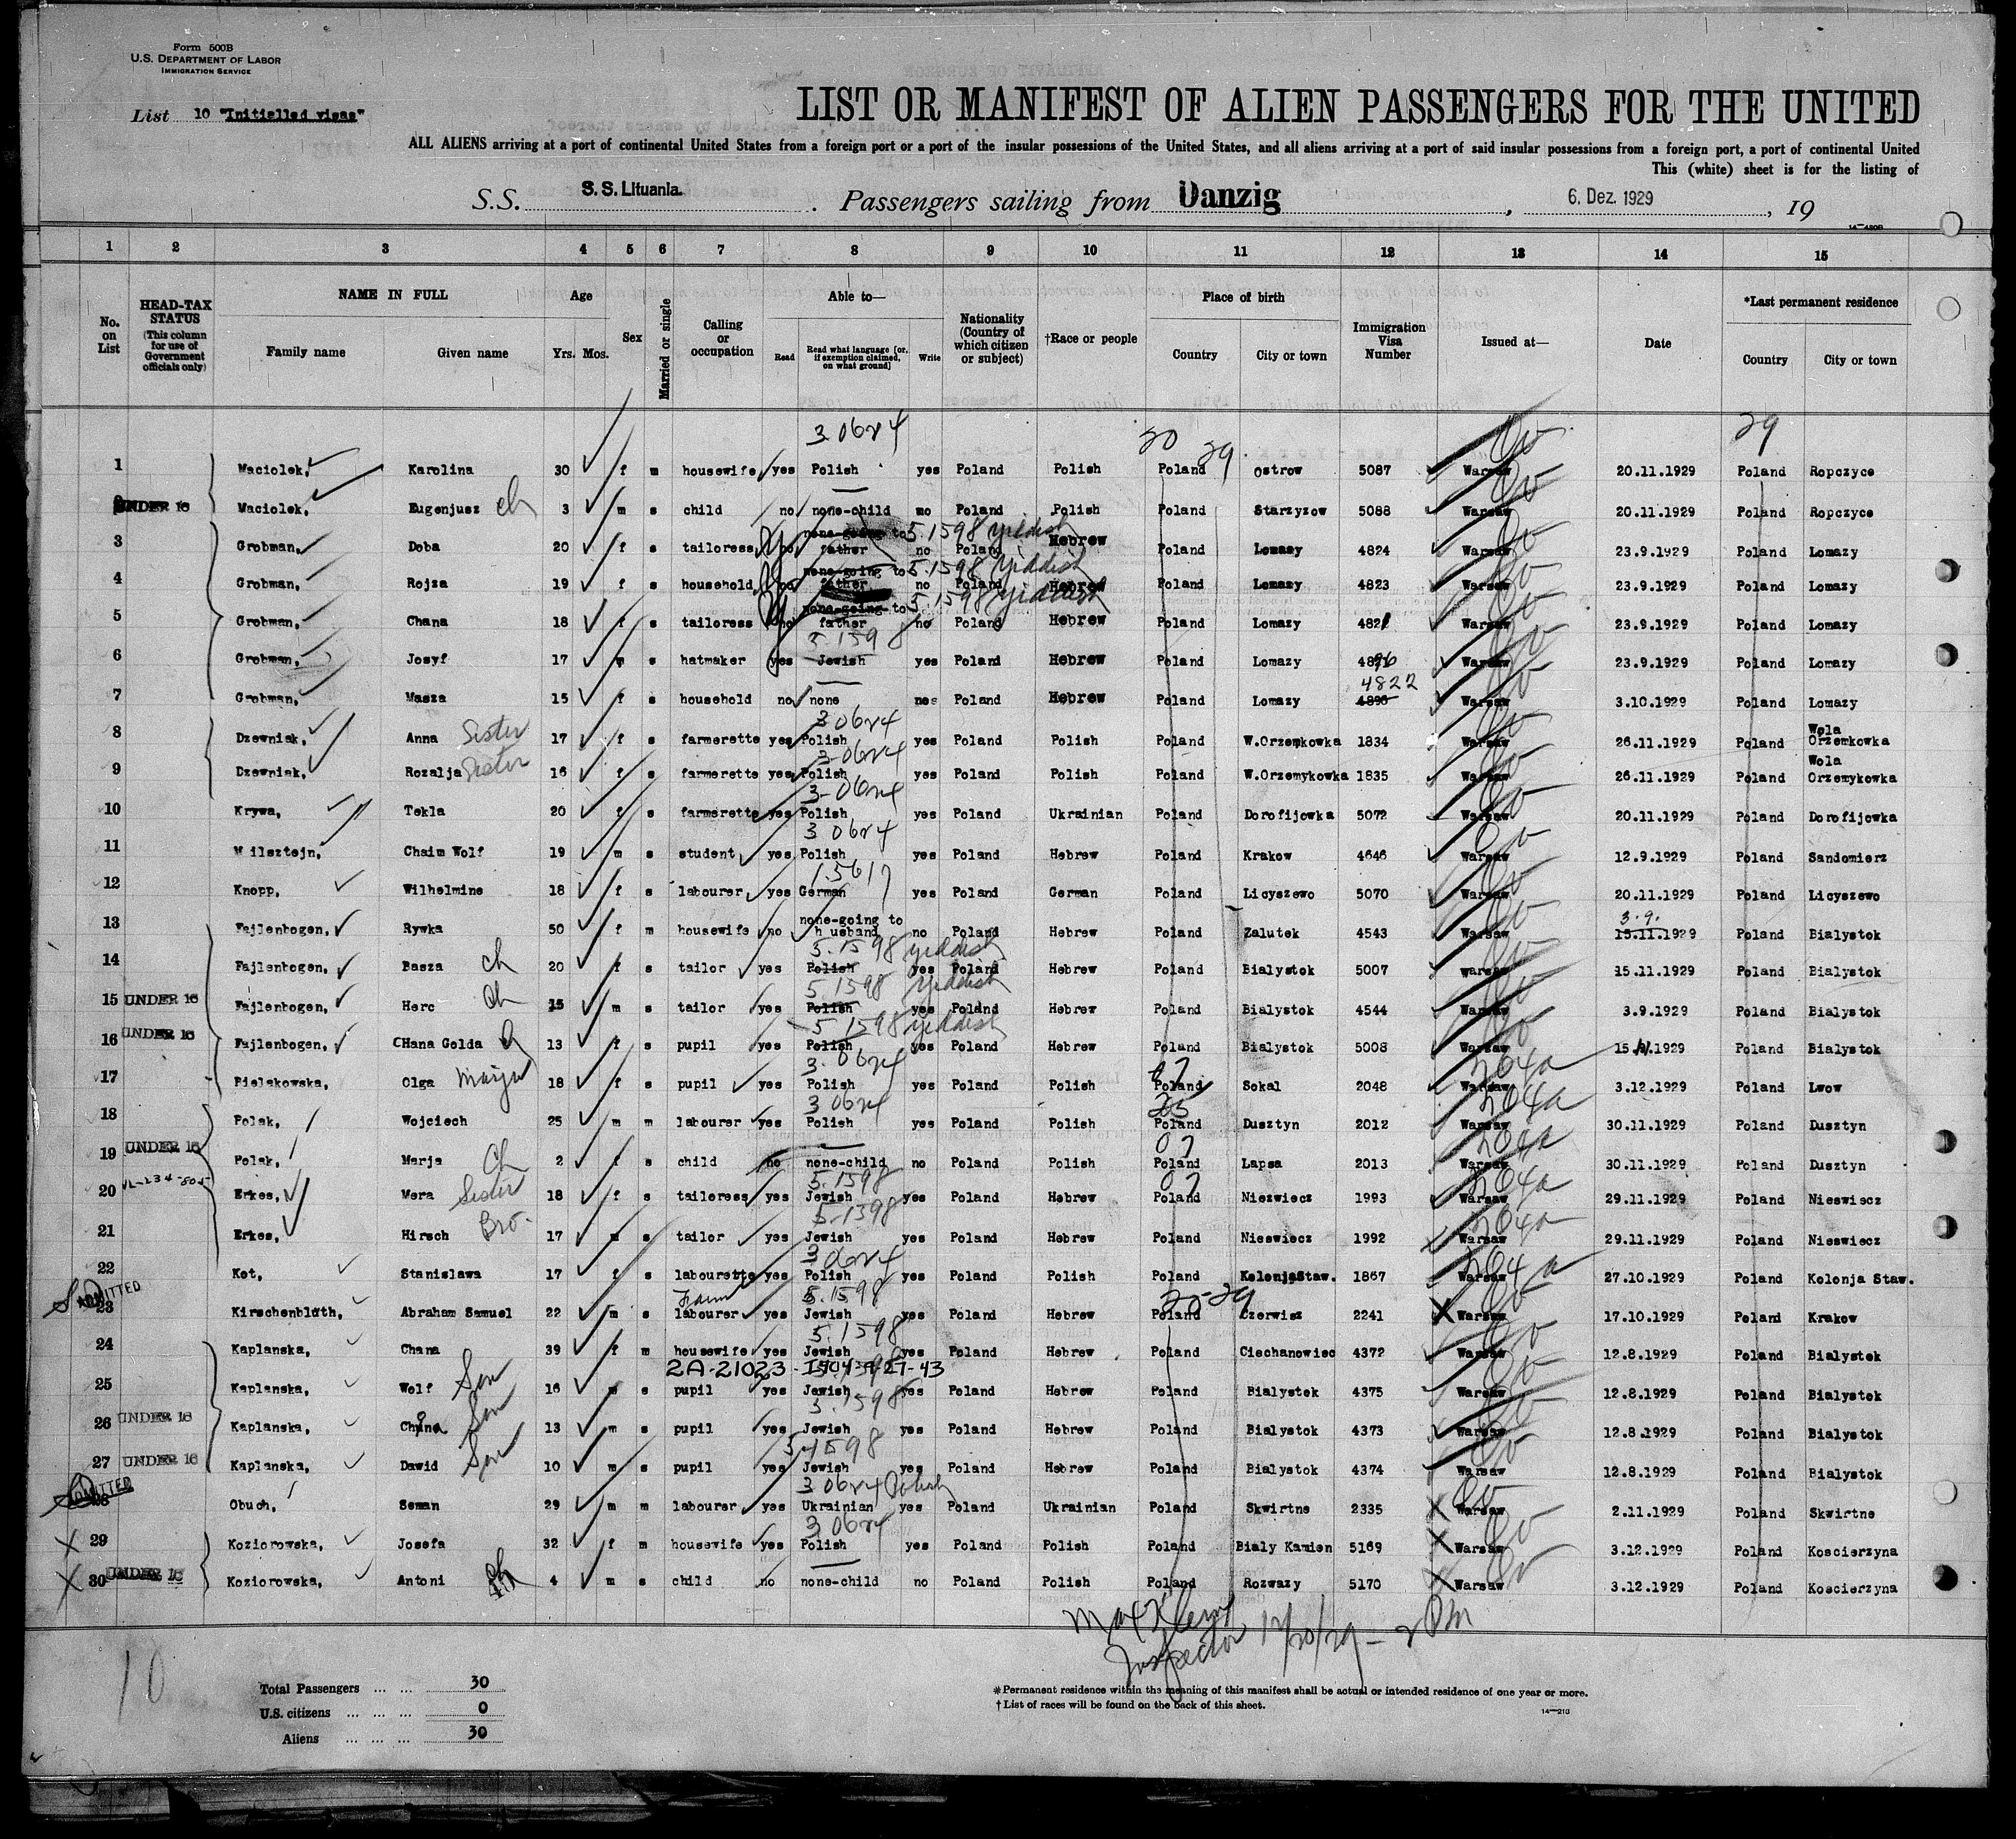 Form 500B
U.S. DEPARTMENT OF LABOR
IMMIGRATION SERVICE
List 10 "Initialled visas"
LIST OR MANIFEST OF ALIEN PASSENGERS FOR THE UNITED
ALL ALIENS arriving at a port of continental United States from a foreign port or a port of the insular possessions of the United States, and all aliens arriving at a port of said insular possessions from a foreign port, a port of continental United
This (white) sheet is for the listing of
S.S. S.S. Lituania. Passengers sailing from Danzig, 6. Dez. 1929, 19
14—430B
1 2 3 4 5 6 7 8 9 10 11 12 13 14 15
No. on List
HEAD-TAX STATUS (This column for use of Government officials only)
NAME IN FULL
Family name Given name
Age
Yrs. Mos.
Sex
Married or single
Calling or occupation
Able to—
Read
Read what language [or, if exemption claimed, on what ground]
Write
Nationality (Country of which citizen or subject)
†Race or people
Place of birth
Country City or town
Immigration Visa Number
Issued at—
Date
*Last permanent residence
Country City or town
30624 20 29 29
1 Maciolek, Karolina 30 f m housewife yes Polish yes Poland Polish Poland Ostrow 5087 Warsaw 20.11.1929 Poland Ropczyce
2 UNDER 16 Maciolek, Eugenjusz ch 3 m s child no none-child no Poland Polish Poland Starzyzow 5088 Warsaw 20.11.1929 Poland Ropczyce
3 Grobman, Doba 20 f s tailoress no none-going to father 5.1598 Yiddish no Poland Hebrew Poland Lomazy 4824 Warsaw 23.9.1929 Poland Lomazy
4 Grobman, Rojza 19 f s household no none-going to father 5.1598 Yiddish no Poland Hebrew Poland Lomazy 4823 Warsaw 23.9.1929 Poland Lomazy
5 Grobman, Chana 18 f s tailoress no none-going to father 5.1598 Yiddish no Poland Hebrew Poland Lomazy 4821 Warsaw 23.9.1929 Poland Lomazy
6 Grobman, Josyf 17 m s hatmaker yes 5.1598 Jewish yes Poland Hebrew Poland Lomazy 4896 Warsaw 23.9.1929 Poland Lomazy
7 Grobman, Masza 15 f s household no none no Poland Hebrew Poland Lomazy 4822 4896 Warsaw 3.10.1929 Poland Lomazy
8 Dzewniak, Anna Sister 17 f s farmerette yes 30624 Polish yes Poland Polish Poland W.Orzemkowka 1834 Warsaw 26.11.1929 Poland Wola Orzemkowka
9 Dzewniak, Rozalja Sister 16 f s farmerette yes 30624 Polish yes Poland Polish Poland W.Orzemykowka 1835 Warsaw 26.11.1929 Poland Wola Orzemykowka
10 Krywa, Tekla 20 f s farmerette yes 30624 Polish yes Poland Ukrainian Poland Dorofijowka 5072 Warsaw 20.11.1929 Poland Dorofijowka
11 Milsztejn, Chaim Wolf 19 m s student yes 30624 Polish yes Poland Hebrew Poland Krakow 4646 Warsaw 12.9.1929 Poland Sandomierz
12 Knopp, Wilhelmine 18 f s labourer yes 1.5617 German yes Poland German Poland Licyszewo 5070 Warsaw 20.11.1929 Poland Licyszewo
13 Fajlenbogen, Rywka 50 f m housewife no none-going to husband no Poland Hebrew Poland Zalutek 4543 Warsaw 3.9. 15.11.1929 Poland Bialystok
14 Fajlenbogen, Basza ch 20 f s tailor yes 5.1598 Yiddish Polish yes Poland Hebrew Poland Bialystok 5007 Warsaw 15.11.1929 Poland Bialystok
15 UNDER 16 Fajlenbogen, Herc ch 15 m s tailor yes 5.1598 Yiddish Polish yes Poland Hebrew Poland Bialystok 4544 Warsaw 3.9.1929 Poland Bialystok
16 UNDER 16 Fajlenbogen, CHana Golda 13 f s pupil yes 5.1598 Yiddish Polish yes Poland Hebrew Poland Bialystok 5008 Warsaw 15.11.1929 Poland Bialystok
17 Bielakowska, Olga 18 f s pupil yes 30624 Polish yes Poland Polish 07 Poland Sokal 2048 204a Warsaw 3.12.1929 Poland Lwow
18 Polak, Wojciech 25 m m labourer yes 30624 Polish yes Poland Polish 25 Poland Dusztyn 2012 204a Warsaw 30.11.1929 Poland Dusztyn
19 UNDER 16 Polak, Marja Ch 2 f s child no none-child no Poland Polish 07 Poland Lapsa 2013 204a Warsaw 30.11.1929 Poland Dusztyn
20 Erkes, Mera Sister 18 f s tailoress yes 5.1598 Jewish yes Poland Hebrew 07 Poland Niezwiecz 1993 204a Warsaw 29.11.1929 Poland Nieswiecz
21 Erkes, Hirsch Bro. 17 m s tailor yes 5.1598 Jewish yes Poland Hebrew Poland Nieswiecz 1992 204a Warsaw 29.11.1929 Poland Nieswiecz
22 Kot, Stanislawa 17 f s labourette yes 30624 Polish yes Poland Polish Poland KolonjaStaw. 1867 204a Warsaw 27.10.1929 Poland Kolonja Staw.
ADMITTED 23 Kirschenbluth, Abraham Samuel 22 m s Farm labourer yes 5.1598 Jewish yes Poland Hebrew 25-29 Poland Czerwisz 2241 Warsaw 17.10.1929 Poland Krakow
24 Kaplanska, Chana 39 f m housewife yes 5.1598 Jewish yes Poland Hebrew Poland Ciechanowiec 4372 Warsaw 12.8.1929 Poland Bialystok
2A-21023
25 Kaplanska, Wolf Son 16 m s pupil yes Jewish yes Poland Hebrew Poland Bialystok 4375 Warsaw 12.8.1929 Poland Bialystok
26 UNDER 16 Kaplanska, Chuna Son 13 m s pupil yes 5.1598 Jewish yes Poland Hebrew Poland Bialystok 4373 Warsaw 12.8.1929 Poland Bialystok
27 UNDER 16 Kaplanska, Dawid Son 10 m s pupil yes 5.1598 Jewish yes Poland Hebrew Poland Bialystok 4374 Warsaw 12.8.1929 Poland Bialystok
ADMITTED 28 Obuch, Seman 29 m m labourer yes 30624 Polish Ukrainian yes Poland Ukrainian Poland Skwirtne 2335 Warsaw 2.11.1929 Poland Skwirtne
X 29 Koziorowska, Josefa 32 f m housewife yes 30624 Polish yes Poland Polish Poland Bialy Kamien 5169 Warsaw 3.12.1929 Poland Koscierzyna
X 30 UNDER 16 Koziorowska, Antoni ch 4 m s child no none-child no Poland Polish Poland Rozwazy 5170 Warsaw 3.12.1929 Poland Koscierzyna
Max Klein
Inspector 12/20/29 – 2 PM
10
Total Passengers 30
U.S. citizens 0
Aliens 30
*Permanent residence within the meaning of this manifest shall be actual or intended residence of one year or more.
†List of races will be found on the back of this sheet.
14—210